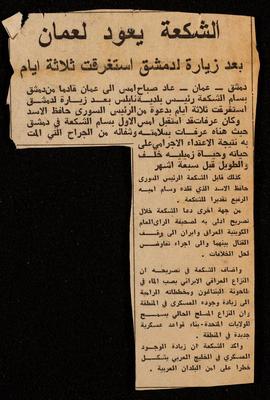 الشكعة يعود لعمان
بعد زيارة لدمشق استغرقت ثلاثة ايام
دمشق - عمان - عاد صباح امس الى عمان قادما من دمشق
بسام الشكعة رئيس بلدية نابلس بعد زيارة لدمشق
استغرقت ثلاثة ايام بدعوة من الرئيس السوري حافظ الاسد
وكان عرفات قد استقبل امس الاول بسام الشكعة في دمشق
حيث هناه عرفات بسلامته وشفائه من الجراح التي المت
به نتيجة الاعتداء الاجرامي على
حياته وحياة زميليه خلف
والطويل قبل سبعة اشهر
كذلك قابل الشكعة الرئيس السوري
حافظ الاسد الذي قلده وسام امية
الرفيع تقديرا للشكعة .
من جهة اخرى دعا الشكعة خلال
تصريح ادلى به لصحيفة الراي العام
الكويتية العراق وايران الى وقف
القتال بينهما والى اجراء تفاوض
لحل الخلافات .
واضاف الشكعة في تصريحه ان
النزاع العراقي الايراني يصب الماء في
طاحونة البنتاغون ومخططاته الرامية
الى زيادة وجوده العسكري في المنطقة
وان النزاع المسلح الحالي يسمح
للولايات المتحدة - بناء قواعد عسكرية
جديدة في المنطقة .
واكد الشكعة ان زيادة الوجود
العسكري في الخليج العربي يشكل
خطرا على امن البلدان العربية .